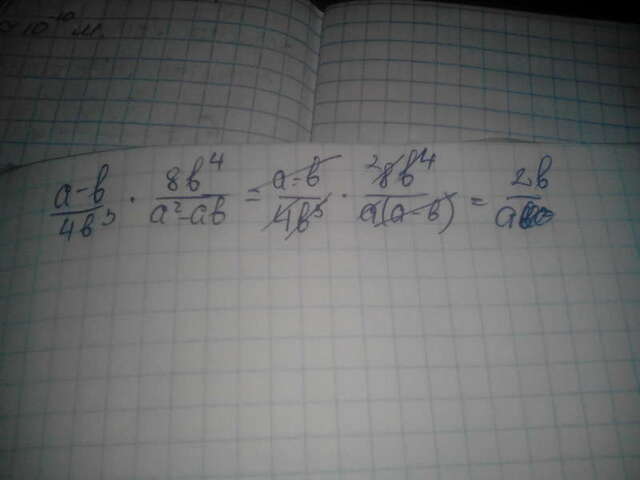 10⁻¹⁰ м.
a-b/4b³ · 8b⁴/a²-ab = a-b/4b³ · ²8b⁴/a(a-b) = 2b/a